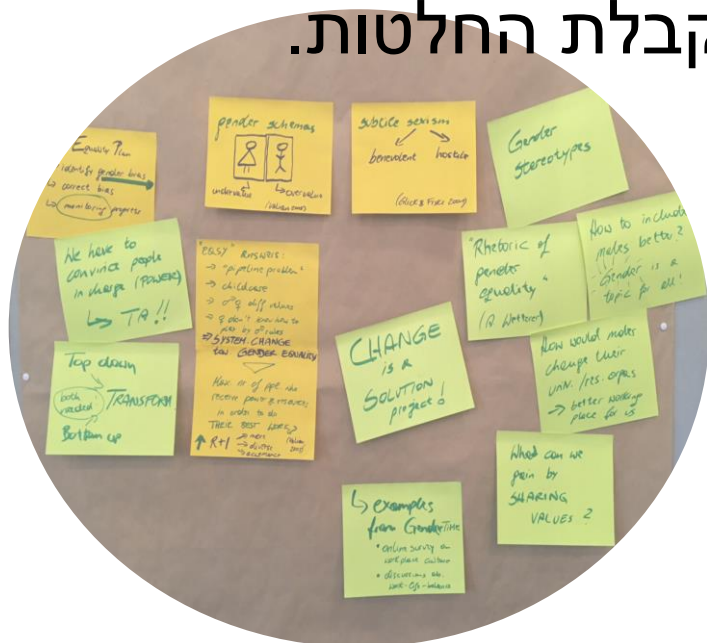 קבלת החלטות.
Equality Plan
identify gender bias
↳ correct bias
↳ monitoring progress
gender schemas
undervalue
↳ overvalue
(Valian 2005)
subtile sexism
benevolent hostile
(Glick & Fiske 2001)
Gender
stereotypes
We have to
convince people
in charge (POWER)
↳ TA!!
"EASY" ANSWERS:
→ "pipeline problem"
→ childcare
→ ♂ ♀ diff values
→ ♀ don't know how to
play by ♂ rules
⇒ SYSTEM-CHANGE
for GENDER EQUALITY
How of ppl who
receive power & resources
in order to do
THEIR BEST WORK?
↑ R+I → more
→ diverse
"Rhetoric of
gender
equality"
(A. Wetterer)
How to include
males better?
"Gender is a
topic for all!"
Top down
both
needed
TRANSFORM
Bottom up
CHANGE
is a
SOLUTION
project!
How would males
change their
univ./res. orgas
→ better working
place for us
What can we
gain by
SHARING
VALUES?
↳ examples
from GenderTIME
• online survey on
workplace culture
• discussions
work-life-balance